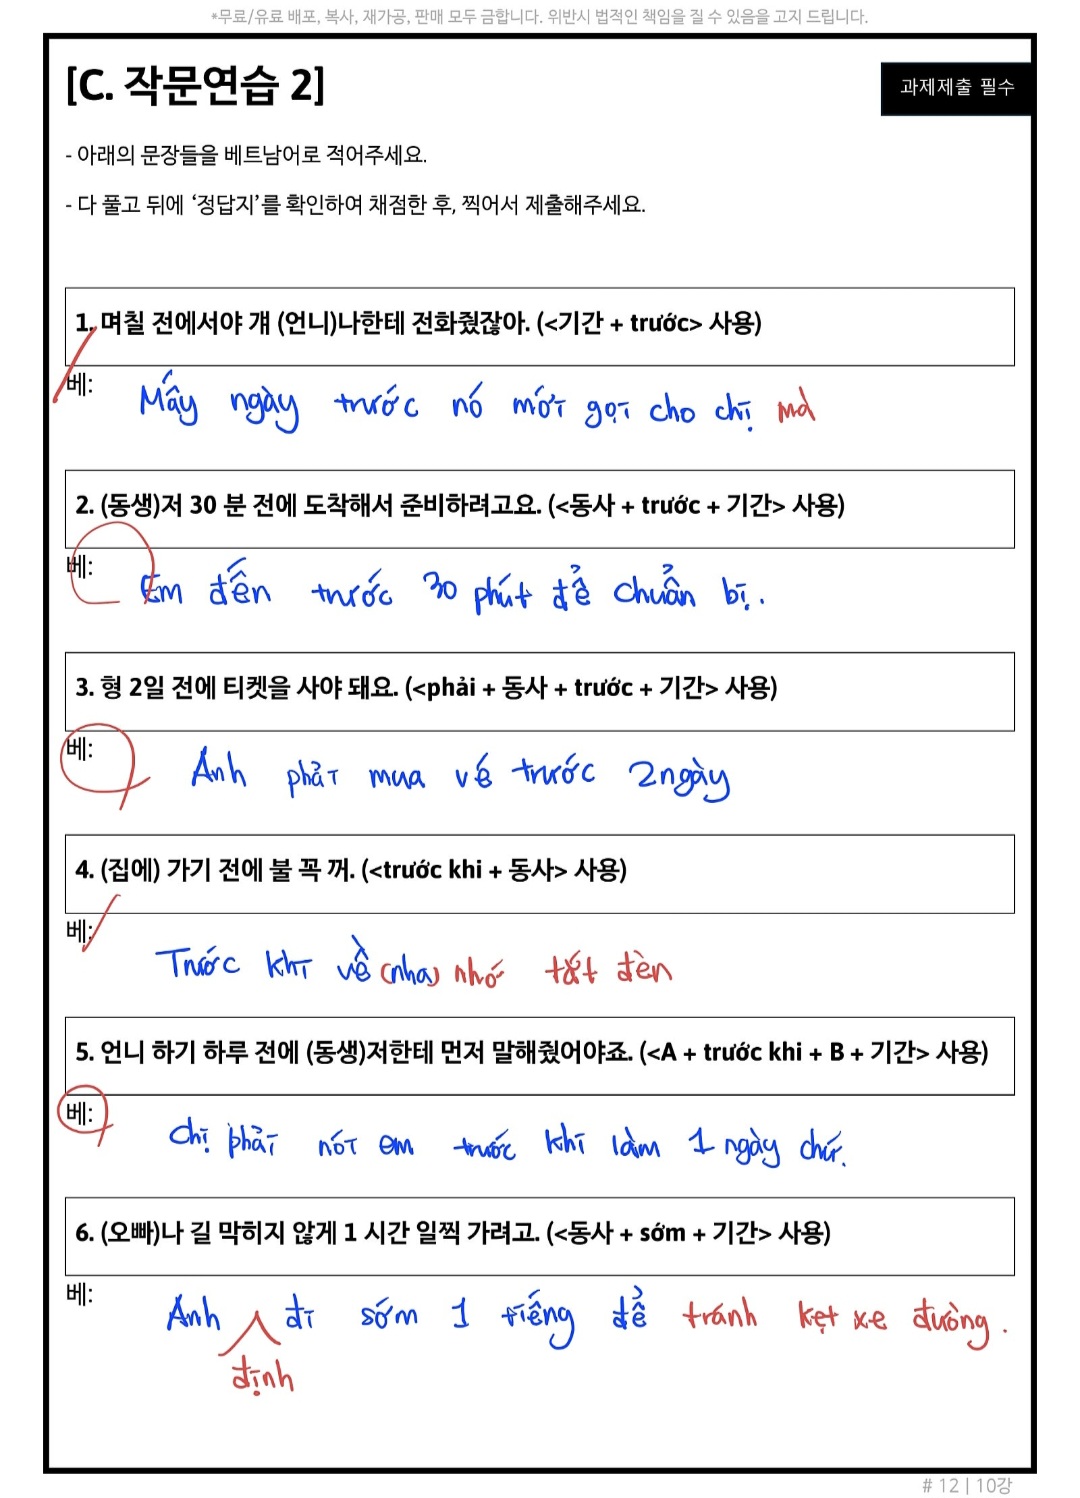 *무료/유료 배포, 복사, 재가공, 판매 모두 금합니다. 위반시 법적인 책임을 질 수 있음을 고지 드립니다.
[C. 작문연습 2]
과제제출 필수
- 아래의 문장들을 베트남어로 적어주세요.
- 다 풀고 뒤에 ‘정답지’를 확인하여 채점한 후, 찍어서 제출해주세요.
1. 며칠 전에서야 걔 (언니)나한테 전화줬잖아. (<기간 + trước> 사용)
베: Mấy ngày trước nó mới gọi cho chị mà
2. (동생)저 30 분 전에 도착해서 준비하려고요. (<동사 + trước + 기간> 사용)
베: Em đến trước 30 phút để chuẩn bị.
3. 형 2일 전에 티켓을 사야 돼요. (<phải + 동사 + trước + 기간> 사용)
베: Anh phải mua vé trước 2ngày
4. (집에) 가기 전에 불 꼭 꺼. (<trước khi + 동사> 사용)
베: Trước khi về (nha) nhớ tắt đèn
5. 언니 하기 하루 전에 (동생)저한테 먼저 말해줬어야죠. (<A + trước khi + B + 기간> 사용)
베: Chị phải nói em trước khi làm 1 ngày chứ.
6. (오빠)나 길 막히지 않게 1 시간 일찍 가려고. (<동사 + sớm + 기간> 사용)
베: Anh đi sớm 1 tiếng để tránh kẹt xe đường.
định
# 12 | 10강